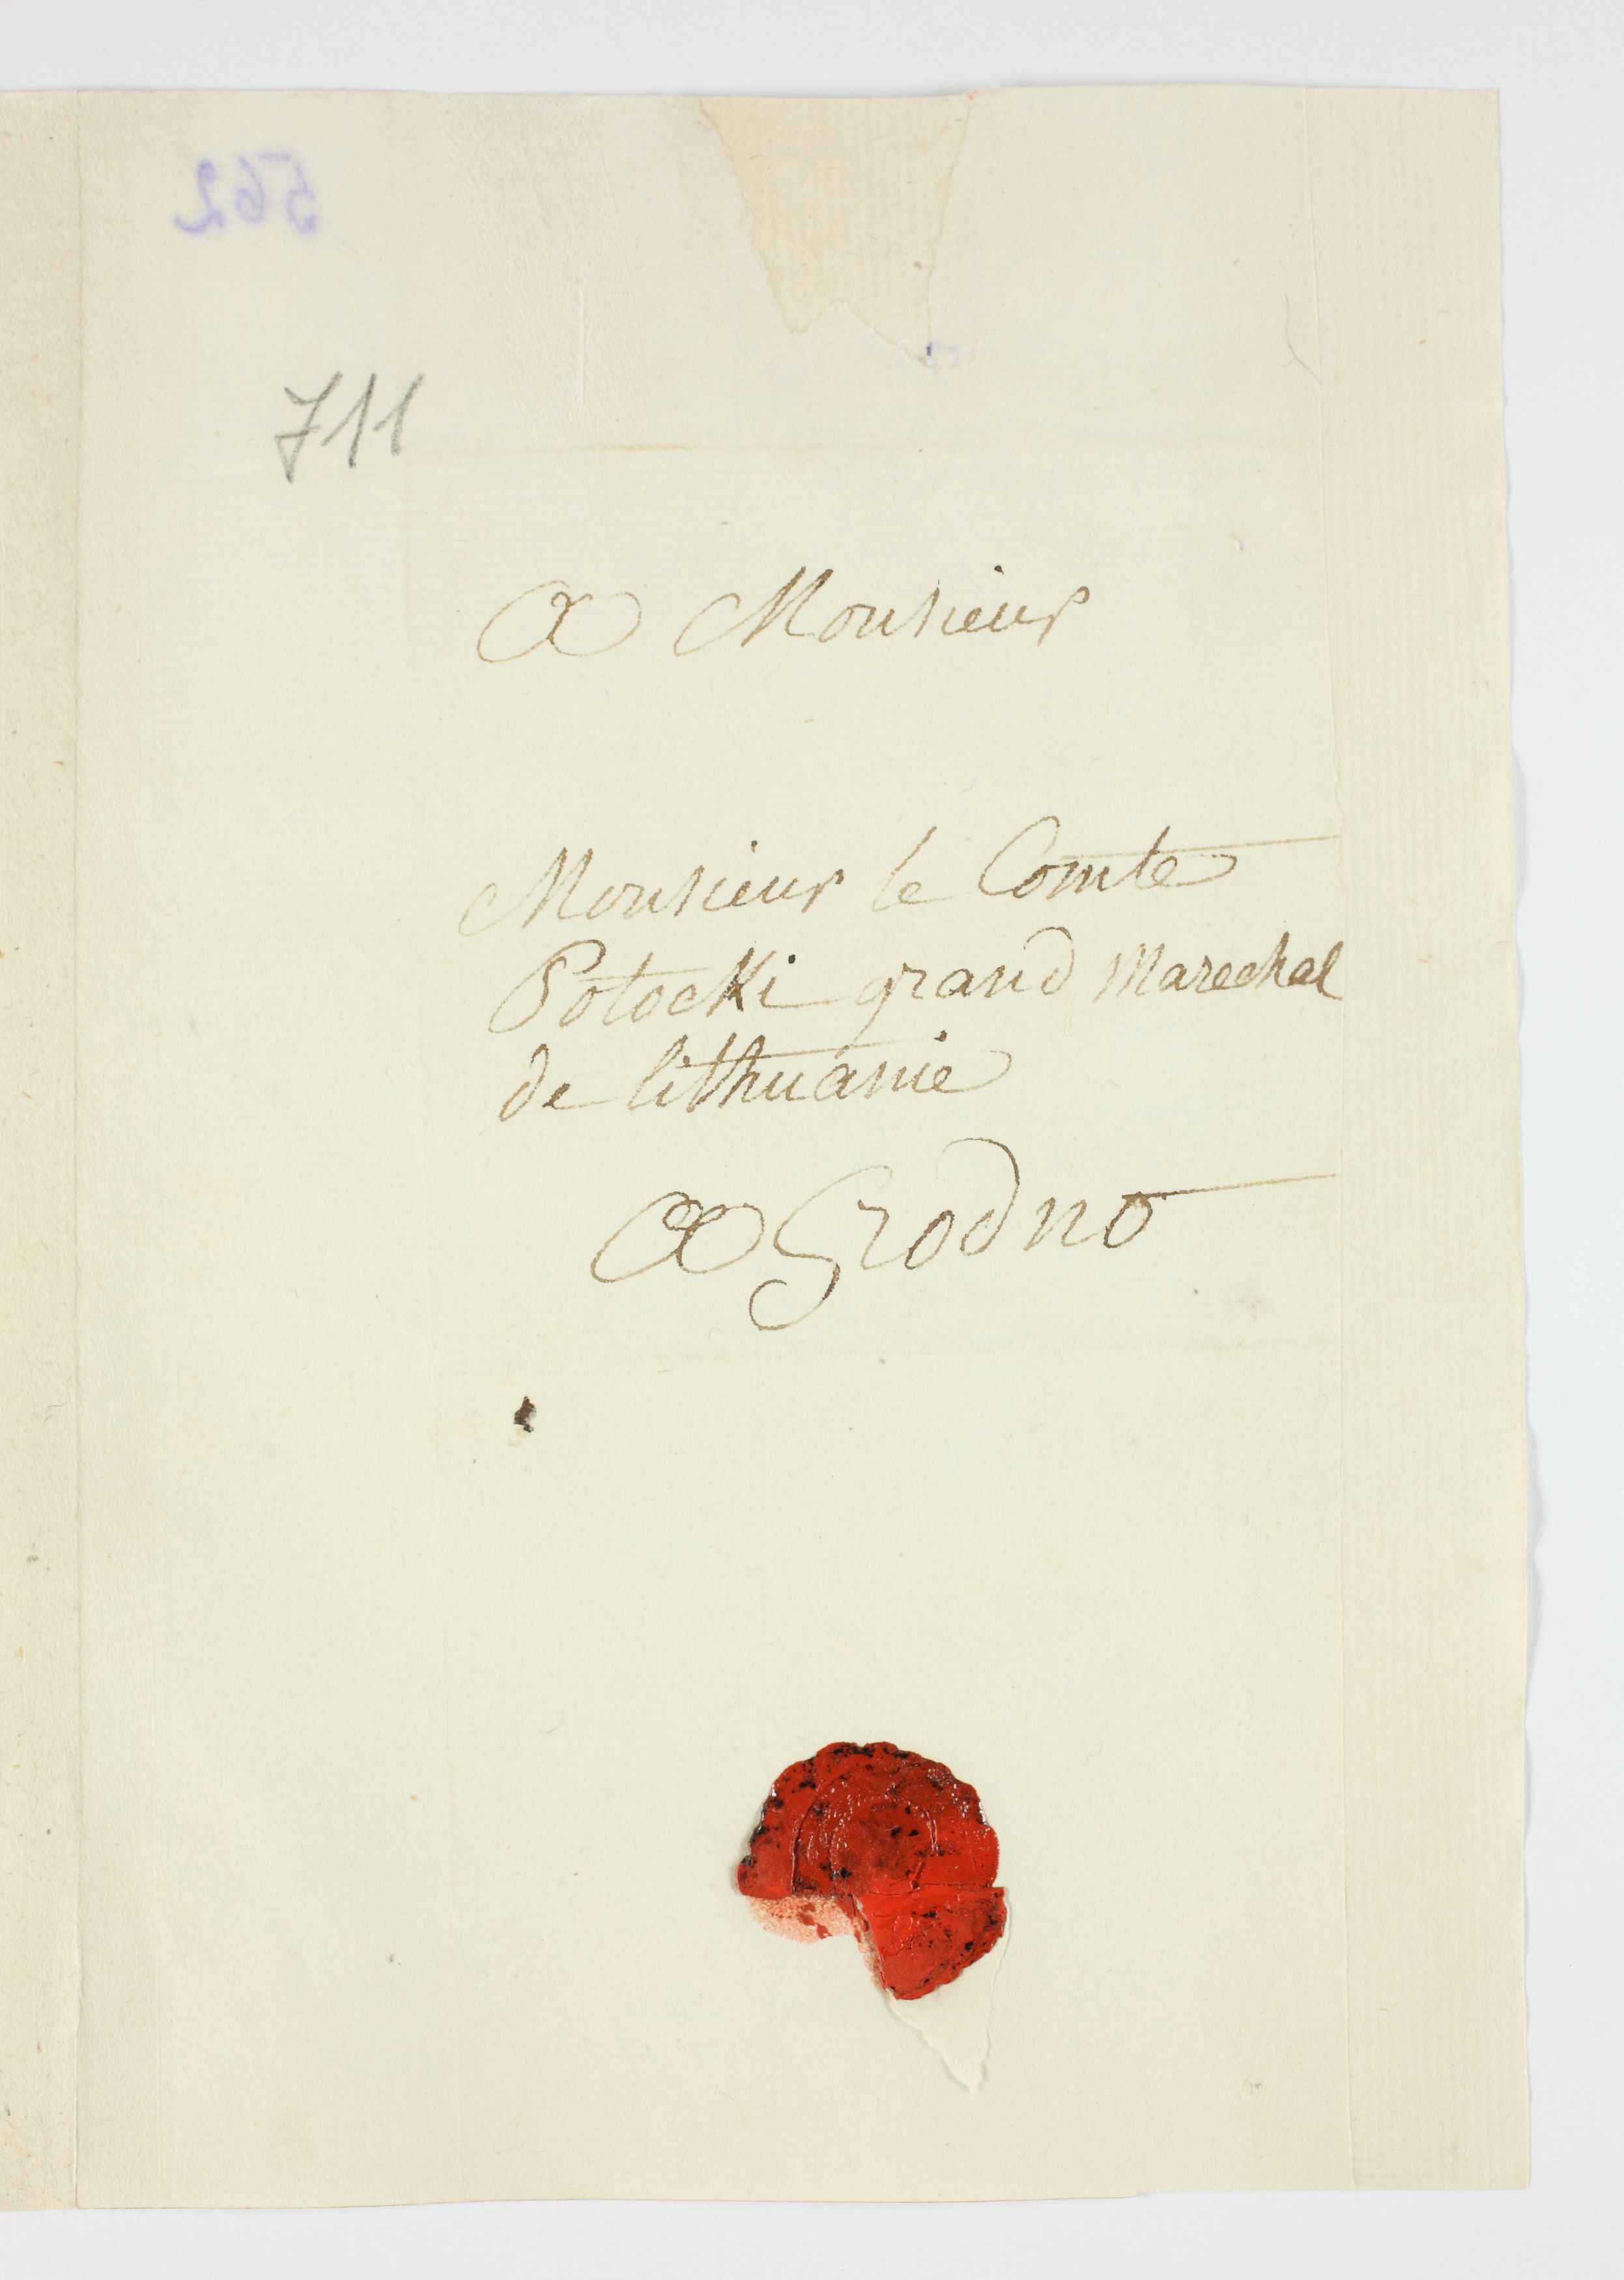 562
711
A Monsieur
Monsieur le Comte
Potocki grand Marechal
de lithuanie
A Grodno